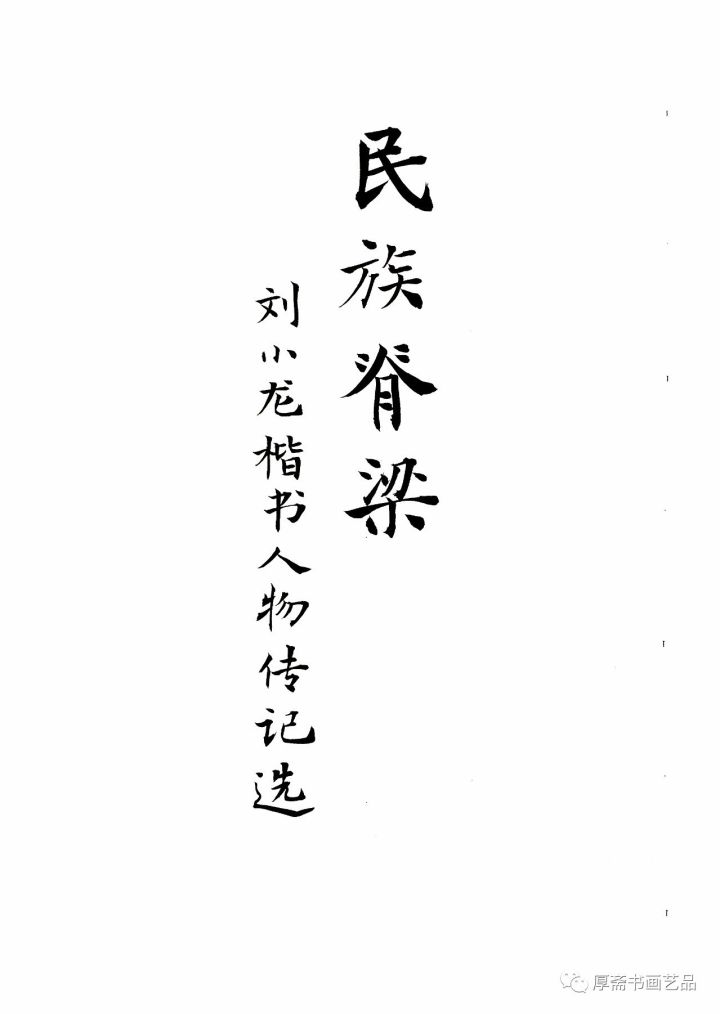 民族脊梁
刘小龙楷书人物传记选
厚斋书画艺品